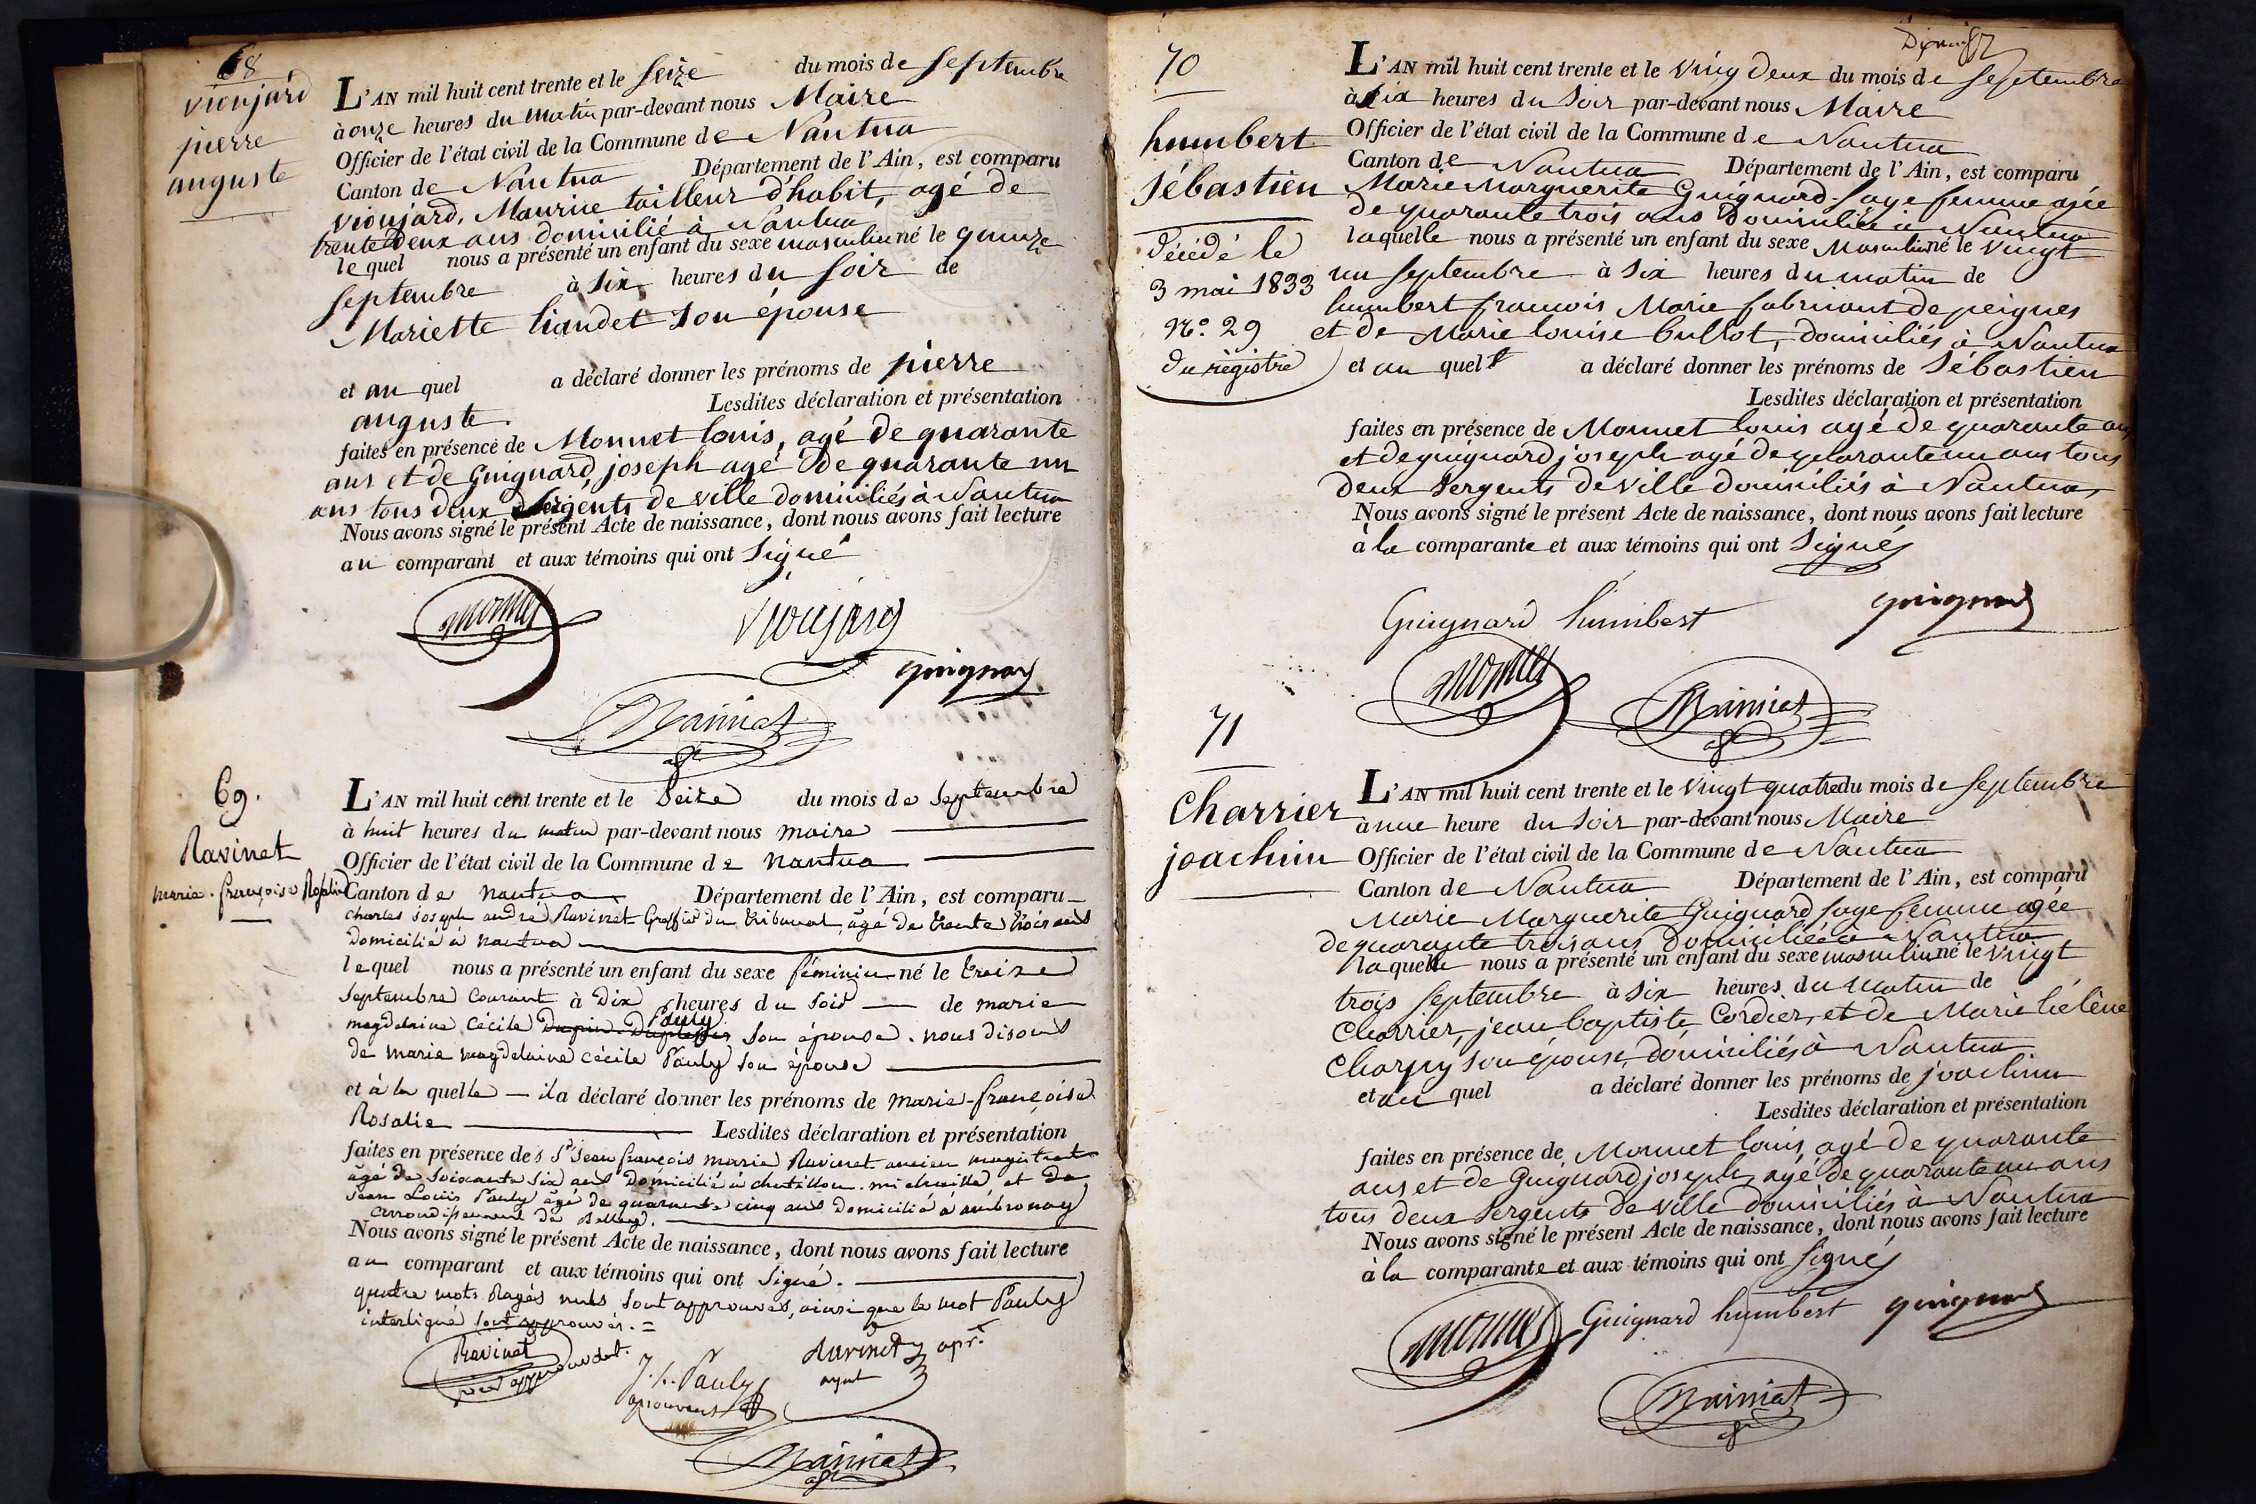 68
vioujard
pierre
auguste
L'AN mil huit cent trente et le seize du mois de septembre
à onze heures du matin par-devant nous Maire
Officier de l'état civil de la Commune de Nantua
Canton de Nantua Département de l'Ain, est comparu
vioujard, Maurice tailleur d'habit, agé de
trente deux ans domicilié à Nantua
lequel nous a présenté un enfant du sexe masculin né le quinze
septembre à six heures du soir de
Mariette liaudet son épouse
et au quel a déclaré donner les prénoms de pierre
auguste. Lesdites déclaration et présentation
faites en présence de Monnet louis, agé de quarante
ans et de Guignard, joseph agé de quarante un
ans tous deux sergents de ville domiciliés à Nantua
Nous avons signé le présent Acte de naissance, dont nous avons fait lecture
au comparant et aux témoins qui ont signé
Monnet
vioujard
guignard
69.
Ravinet
marie-françoise
L'AN mil huit cent trente et le seize du mois de septembre
à huit heures du matin par-devant nous maire
Officier de l'état civil de la Commune de nantua
Canton de nantua Département de l'Ain, est comparu
charles joseph andré Ravinet Greffier du tribunal, âgé de trente trois ans
domicilié à nantua
lequel nous a présenté un enfant du sexe féminin né le treize
septembre courant à dix heures du soir de marie
Pauly
magdelaine cécile son épouse. nous disons
de marie magdelaine cécile Pauly son épouse
et à la quelle il a déclaré donner les prénoms de marie-françoise
Rosalie Lesdites déclaration et présentation
faites en présence des Sr Jean françois marie Ravinet ancien magistrat
âgé de soixante six ans domicilié à chatillon-michaille et de
Jean Louis Pauly âgé de quarante cinq ans domicilié à ambronay
arrondissement de Belley.
Nous avons signé le présent Acte de naissance, dont nous avons fait lecture
au comparant et aux témoins qui ont signé.
quatre mots rayés nuls sont approuvés, ainsi que le mot Pauly
interligné sont approuvés.
Ravinet
J. L. Pauly
70
humbert
sébastien
décédé le
3 mai 1833
No. 29
du registre
L'AN mil huit cent trente et le vingt deux du mois de septembre
à six heures du soir par-devant nous Maire
Officier de l'état civil de la Commune de Nantua
Canton de Nantua Département de l'Ain, est comparu
Marie Marguerite Guignard sage femme agée
de quarante trois ans domiciliée à Nantua
laquelle nous a présenté un enfant du sexe Masculin né le vingt
un septembre à six heures du matin de
humbert françois Marie fabricant de peignes
et de Marie louise bullot, domiciliés à Nantua
et au quel a déclaré donner les prénoms de Sébastien
Lesdites déclaration et présentation
faites en présence de Monnet louis agé de quarante ans
et de guignard joseph agé de quarante un ans tous
deux sergents de ville domiciliés à Nantua
Nous avons signé le présent Acte de naissance, dont nous avons fait lecture
à la comparante et aux témoins qui ont signés
Guignard humbert guignard
Monnet
71
Charrier
joachim
L'AN mil huit cent trente et le vingt quatre du mois de septembre
à une heure du soir par-devant nous Maire
Officier de l'état civil de la Commune de Nantua
Canton de Nantua Département de l'Ain, est comparu
Marie Marguerite Guignard sage femme agée
de quarante trois ans domiciliée à Nantua
laquelle nous a présenté un enfant du sexe masculin né le vingt
trois septembre à six heures du matin de
Charrier, jean baptiste, Cordier, et de Marie hélène
Charpy son épouse, domiciliés à Nantua
et au quel a déclaré donner les prénoms de joachim
Lesdites déclaration et présentation
faites en présence de Monnet louis, agé de quarante
ans et de Guignard joseph, agé de quarante un ans
tous deux sergents de ville domiciliés à Nantua
Nous avons signé le présent Acte de naissance, dont nous avons fait lecture
à la comparante et aux témoins qui ont signés
Monnet Guignard humbert guignard